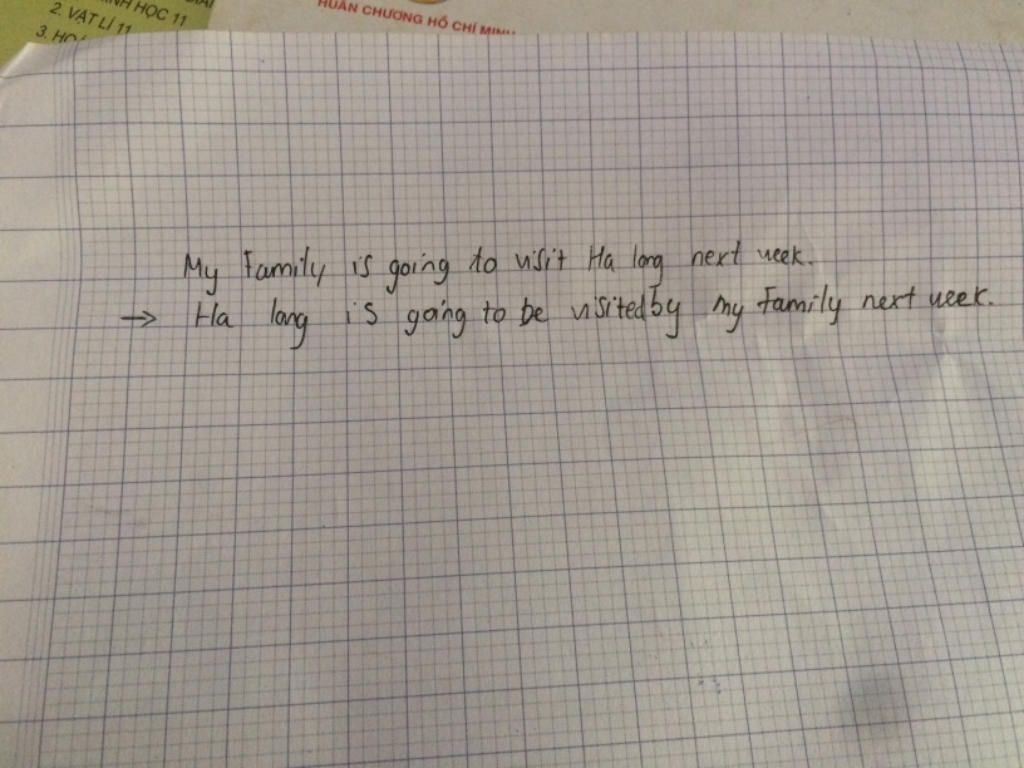 HỌC 11
2. VẬT LÍ 11
3.
HUÂN CHƯƠNG HỒ CHÍ MINH
My Family is going to visit Ha long next week.
→ Ha long is going to be visited by my Family next week.